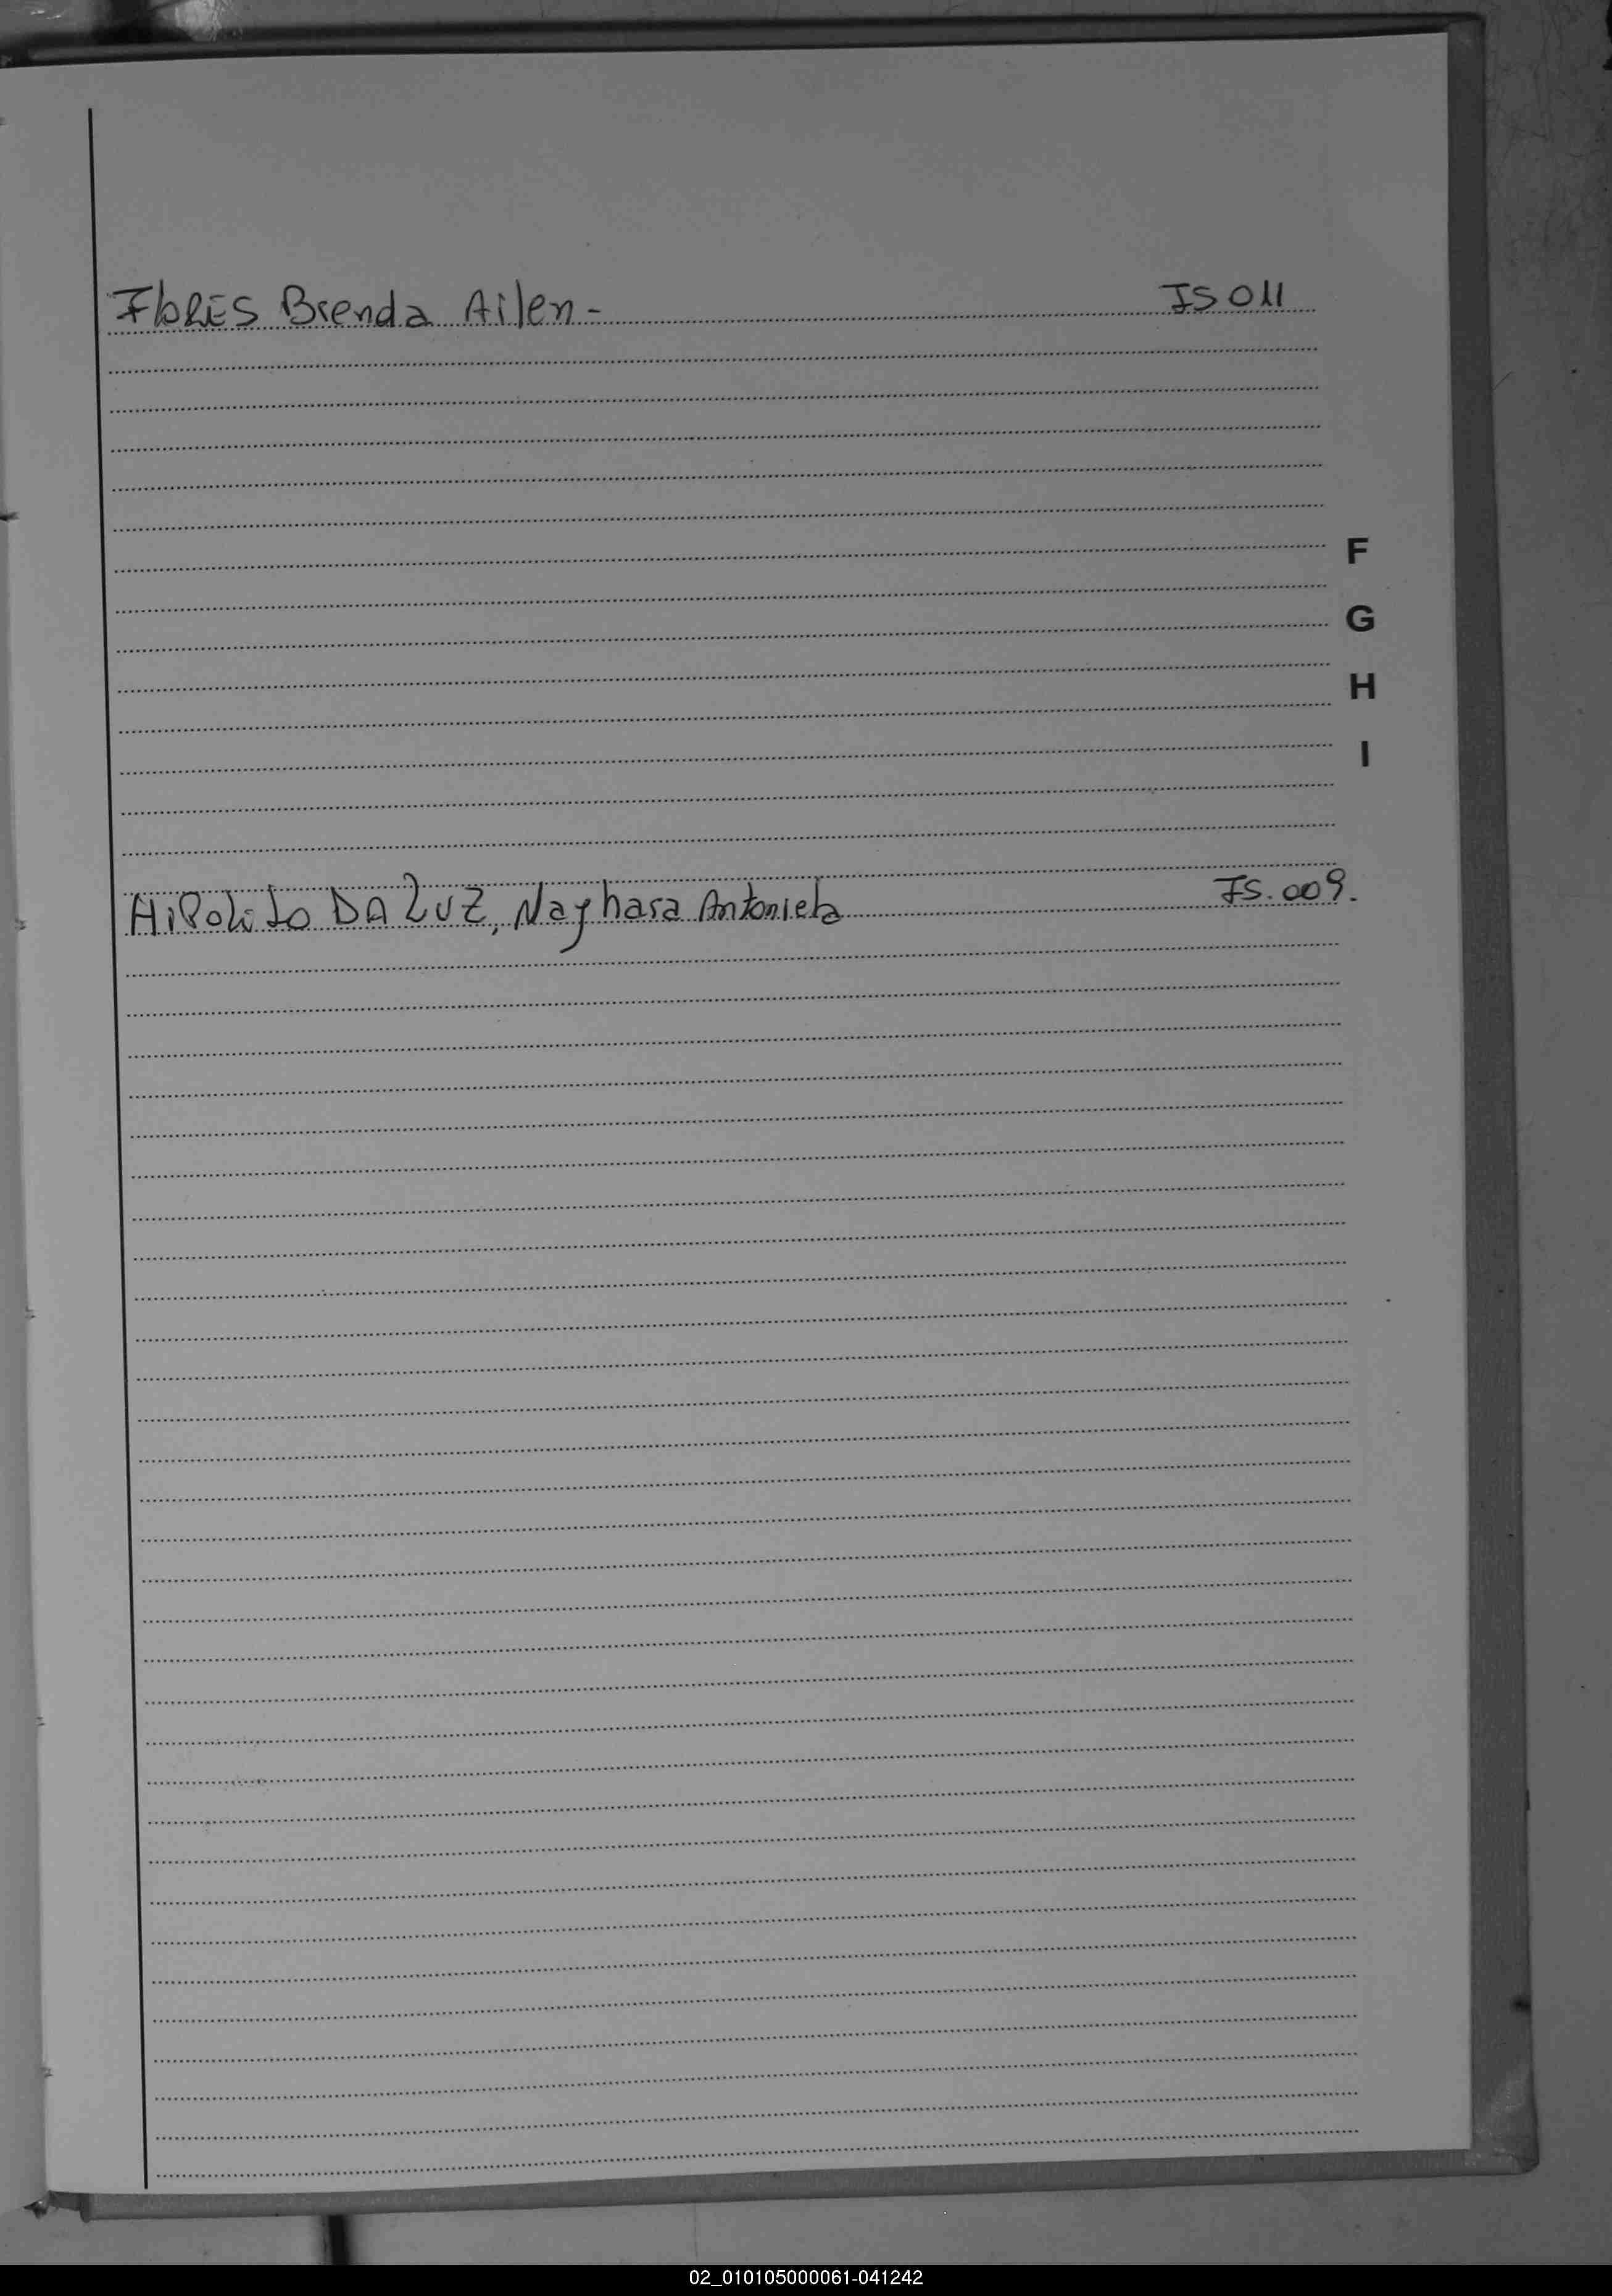 FloRES Brenda Ailen - IS 011
F
G
H
I
HiPolito DA LUZ, Nayhara Antonieta IS.009.
02_010105000061-041242